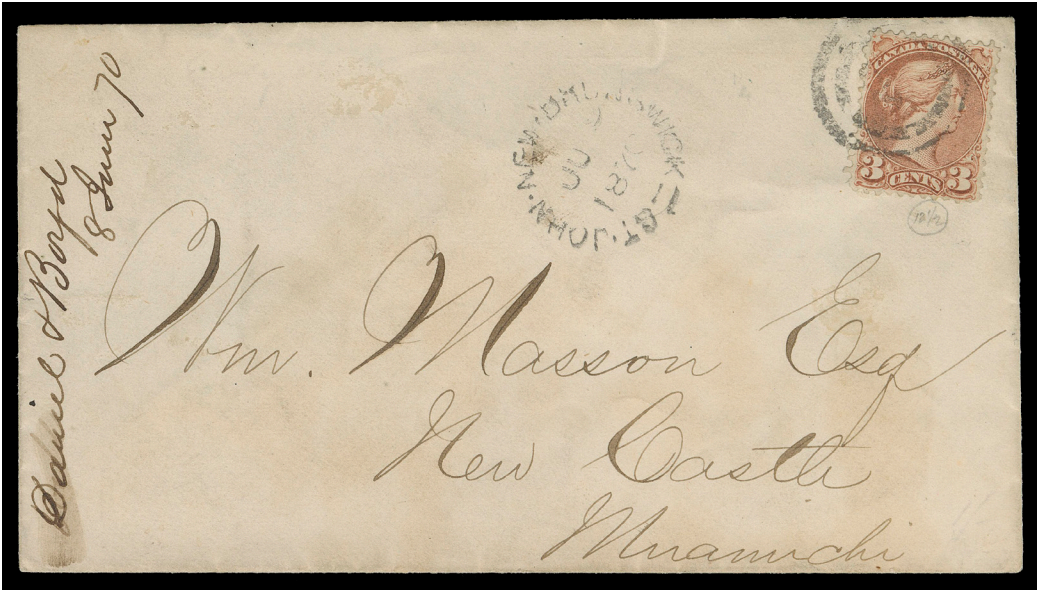 Daniel & Boyd
8 June 70
ST. JOHN. NEW. BRUNSWICK
CANADA POSTAGE
3 CENTS 3
12½
Wm. Masson Esq
New Castle
Miramichi